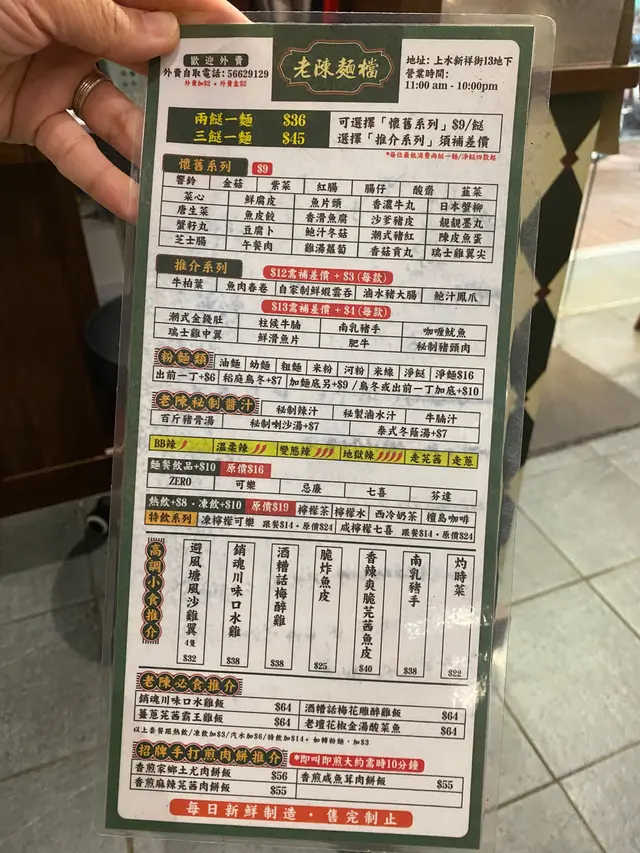 歡迎外賣
外賣自取電話: 56629129
外賣加$2·外賣盒$2
老陳麵檔
地址: 上水新祥街13地下
營業時間:
11:00 am - 10:00pm
兩餸一麵 $36
三餸一麵 $45
可選擇「懷舊系列」$9/餸
選擇「推介系列」須補差價
*每位最低消費兩餸一麵/淨餸四款起
懷舊系列 $9
響鈴 金菇 紫菜 紅腸 腸仔 酸齋 韮菜
菜心 鮮腐皮 魚片頭 香濃牛丸 日本蟹柳
唐生菜 魚皮餃 香滑魚腐 沙爹豬皮 靚靚墨丸
蟹籽丸 豆腐卜 鮑汁冬菇 潮式豬紅 陳皮魚蛋
芝士腸 午餐肉 雞湯蘿蔔 香菇貢丸 瑞士雞翼尖
推介系列 $12需補差價 + $3 (每款)
牛柏葉 魚肉春卷 自家制鮮蝦雲吞 滷水豬大腸 鮑汁鳳爪
$13需補差價 + $4 (每款)
潮式金錢肚 柱候牛腩 南乳豬手 咖喱魷魚
瑞士雞中翼 鮮滑魚片 肥牛 秘制豬頸肉
粉麵類 油麵 幼麵 粗麵 米粉 河粉 米線 淨餸 淨麵$16
出前一丁+$6 稻庭烏冬+$7 加麵底另+$9 /烏冬或出前一丁加底+$10
老陳秘制醬汁 秘制辣汁 秘製滷水汁 牛腩汁
百斤豬骨湯 秘制喇沙湯+$7 泰式冬蔭湯+$7
BB辣 溫柔辣 變態辣 地獄辣 走芫茜 走蔥
麵餐飲品+$10 原價$16
ZERO 可樂 忌廉 七喜 芬達
熱飲+$8·凍飲+$10 原價$19 檸檬茶 檸檬水 西冷奶茶 檀島咖啡
特飲系列 凍檸檬可樂 跟餐$14·原價$24 咸檸檬七喜 跟餐$14·原價$24
高調小食推介
避風塘風沙雞翼 4隻 $32
銷魂川味口水雞 $38
酒糟話梅醉雞 $38
脆炸魚皮 $25
香辣爽脆芫茜魚皮 $40
南乳豬手 $38
灼時菜 $22
老陳必食推介
銷魂川味口水雞飯 $64 酒糟話梅花雕醉雞飯 $64
薑蔥芫茜霸王雞飯 $64 老壇花椒金湯酸菜魚 $64
以上套餐跟熱飲/凍飲加$3/汽水加$6/特飲加$14·如轉粉麵·加$3
招牌手打煎肉餅推介 *即叫即煎大約需時10分鐘
香煎家鄉土尤肉餅飯 $56 香煎咸魚茸肉餅飯 $55
香煎麻辣芫茜肉餅飯 $55
每日新鮮制造·售完制止